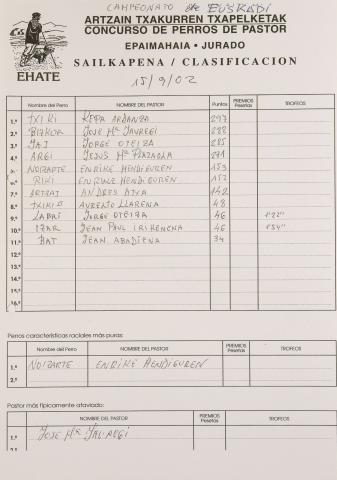 CAMPEONATO de EUSKADI
ARTZAIN TXAKURREN TXAPELKETAK
CONCURSO DE PERROS DE PASTOR
EPAIMAHAIA • JURADO
SAILKAPENA / CLASIFICACION
EHATE
15/9/02
Nombre del Perro NOMBRE DEL PASTOR Puntos PREMIOS Pesetas TROFEOS
1.º TXIKI KEPA ARDANZA 297
2.º BIZKOR JOSE Mª JAUREGI 288
3.º JAI JORGE OTEIZA 285
4.º ARGI JESUS Mª 271
5.º NOIZARTE ENRIKE MENDIGUREN 153
6.º RIKI ENRIKE MENDIGUREN 152
7.º ARTZAI ANDRES 142
8.º TXIKI II AURELIO LLARENA 48
9.º LABRI JORGE OTEIZA 46 1'22"
10.º IZAR JEAN PAUL 46 1'54"
11.º BAT JEAN 34
12.º
13.º
14.º
15.º
16.º
Perros características raciales más puras:
Nombre del Perro NOMBRE DEL PASTOR PREMIOS Pesetas TROFEOS
1.º NOIZARTE ENRIKE MENDIGUREN
2.º
Pastor más típicamente ataviado:
NOMBRE DEL PASTOR PREMIOS Pesetas TROFEOS
1.º JOSE Mª
2.º